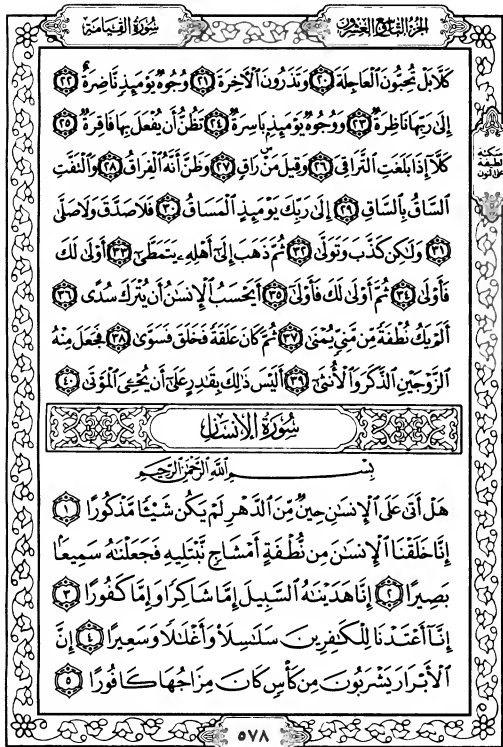 الجزء التاسع والعشرون
سورة القيامة
كَلَّا بَلْ تُحِبُّونَ ٱلْعَاجِلَةَ ٢٠ وَتَذَرُونَ ٱلْءَاخِرَةَ ٢١ وُجُوهٌ يَوْمَئِذٍ نَّاضِرَةٌ ٢٢
إِلَىٰ رَبِّهَا نَاظِرَةٌ ٢٣ وَوُجُوهٌ يَوْمَئِذٍۭ بَاسِرَةٌ ٢٤ تَظُنُّ أَن يُفْعَلَ بِهَا فَاقِرَةٌ ٢٥
كَلَّآ إِذَا بَلَغَتِ ٱلتَّرَاقِىَ ٢٦ وَقِيلَ مَنْۜ رَاقٍ ٢٧ وَظَنَّ أَنَّهُ ٱلْفِرَاقُ ٢٨ وَٱلْتَفَّتِ
ٱلسَّاقُ بِٱلسَّاقِ ٢٩ إِلَىٰ رَبِّكَ يَوْمَئِذٍ ٱلْمَسَاقُ ٣٠ فَلَا صَدَّقَ وَلَا صَلَّىٰ
٣١ وَلَٰكِن كَذَّبَ وَتَوَلَّىٰ ٣٢ ثُمَّ ذَهَبَ إِلَىٰٓ أَهْلِهِۦ يَتَمَطَّىٰٓ ٣٣ أَوْلَىٰ لَكَ
فَأَوْلَىٰ ٣٤ ثُمَّ أَوْلَىٰ لَكَ فَأَوْلَىٰٓ ٣٥ أَيَحْسَبُ ٱلْإِنسَٰنُ أَن يُتْرَكَ سُدًى ٣٦
أَلَمْ يَكُ نُطْفَةً مِّن مَّنِىٍّ يُمْنَىٰ ٣٧ ثُمَّ كَانَ عَلَقَةً فَخَلَقَ فَسَوَّىٰ ٣٨ فَجَعَلَ مِنْهُ
ٱلزَّوْجَيْنِ ٱلذَّكَرَ وَٱلْأُنثَىٰٓ ٣٩ أَلَيْسَ ذَٰلِكَ بِقَٰدِرٍ عَلَىٰٓ أَن يُحْـِۧىَ ٱلْمَوْتَىٰ ٤٠
سورة الإنسان
بِسْمِ ٱللَّهِ ٱلرَّحْمَٰنِ ٱلرَّحِيمِ
هَلْ أَتَىٰ عَلَى ٱلْإِنسَٰنِ حِينٌ مِّنَ ٱلدَّهْرِ لَمْ يَكُن شَيْـًٔا مَّذْكُورًا ١
إِنَّا خَلَقْنَا ٱلْإِنسَٰنَ مِن نُّطْفَةٍ أَمْشَاجٍ نَّبْتَلِيهِ فَجَعَلْنَٰهُ سَمِيعًۢا
بَصِيرًا ٢ إِنَّا هَدَيْنَٰهُ ٱلسَّبِيلَ إِمَّا شَاكِرًا وَإِمَّا كَفُورًا ٣
إِنَّآ أَعْتَدْنَا لِلْكَٰفِرِينَ سَلَٰسِلَا۟ وَأَغْلَٰلًا وَسَعِيرًا ٤ إِنَّ
ٱلْأَبْرَارَ يَشْرَبُونَ مِن كَأْسٍ كَانَ مِزَاجُهَا كَافُورًا ٥
سكتة
لطيفة
على النون
٥٧٨